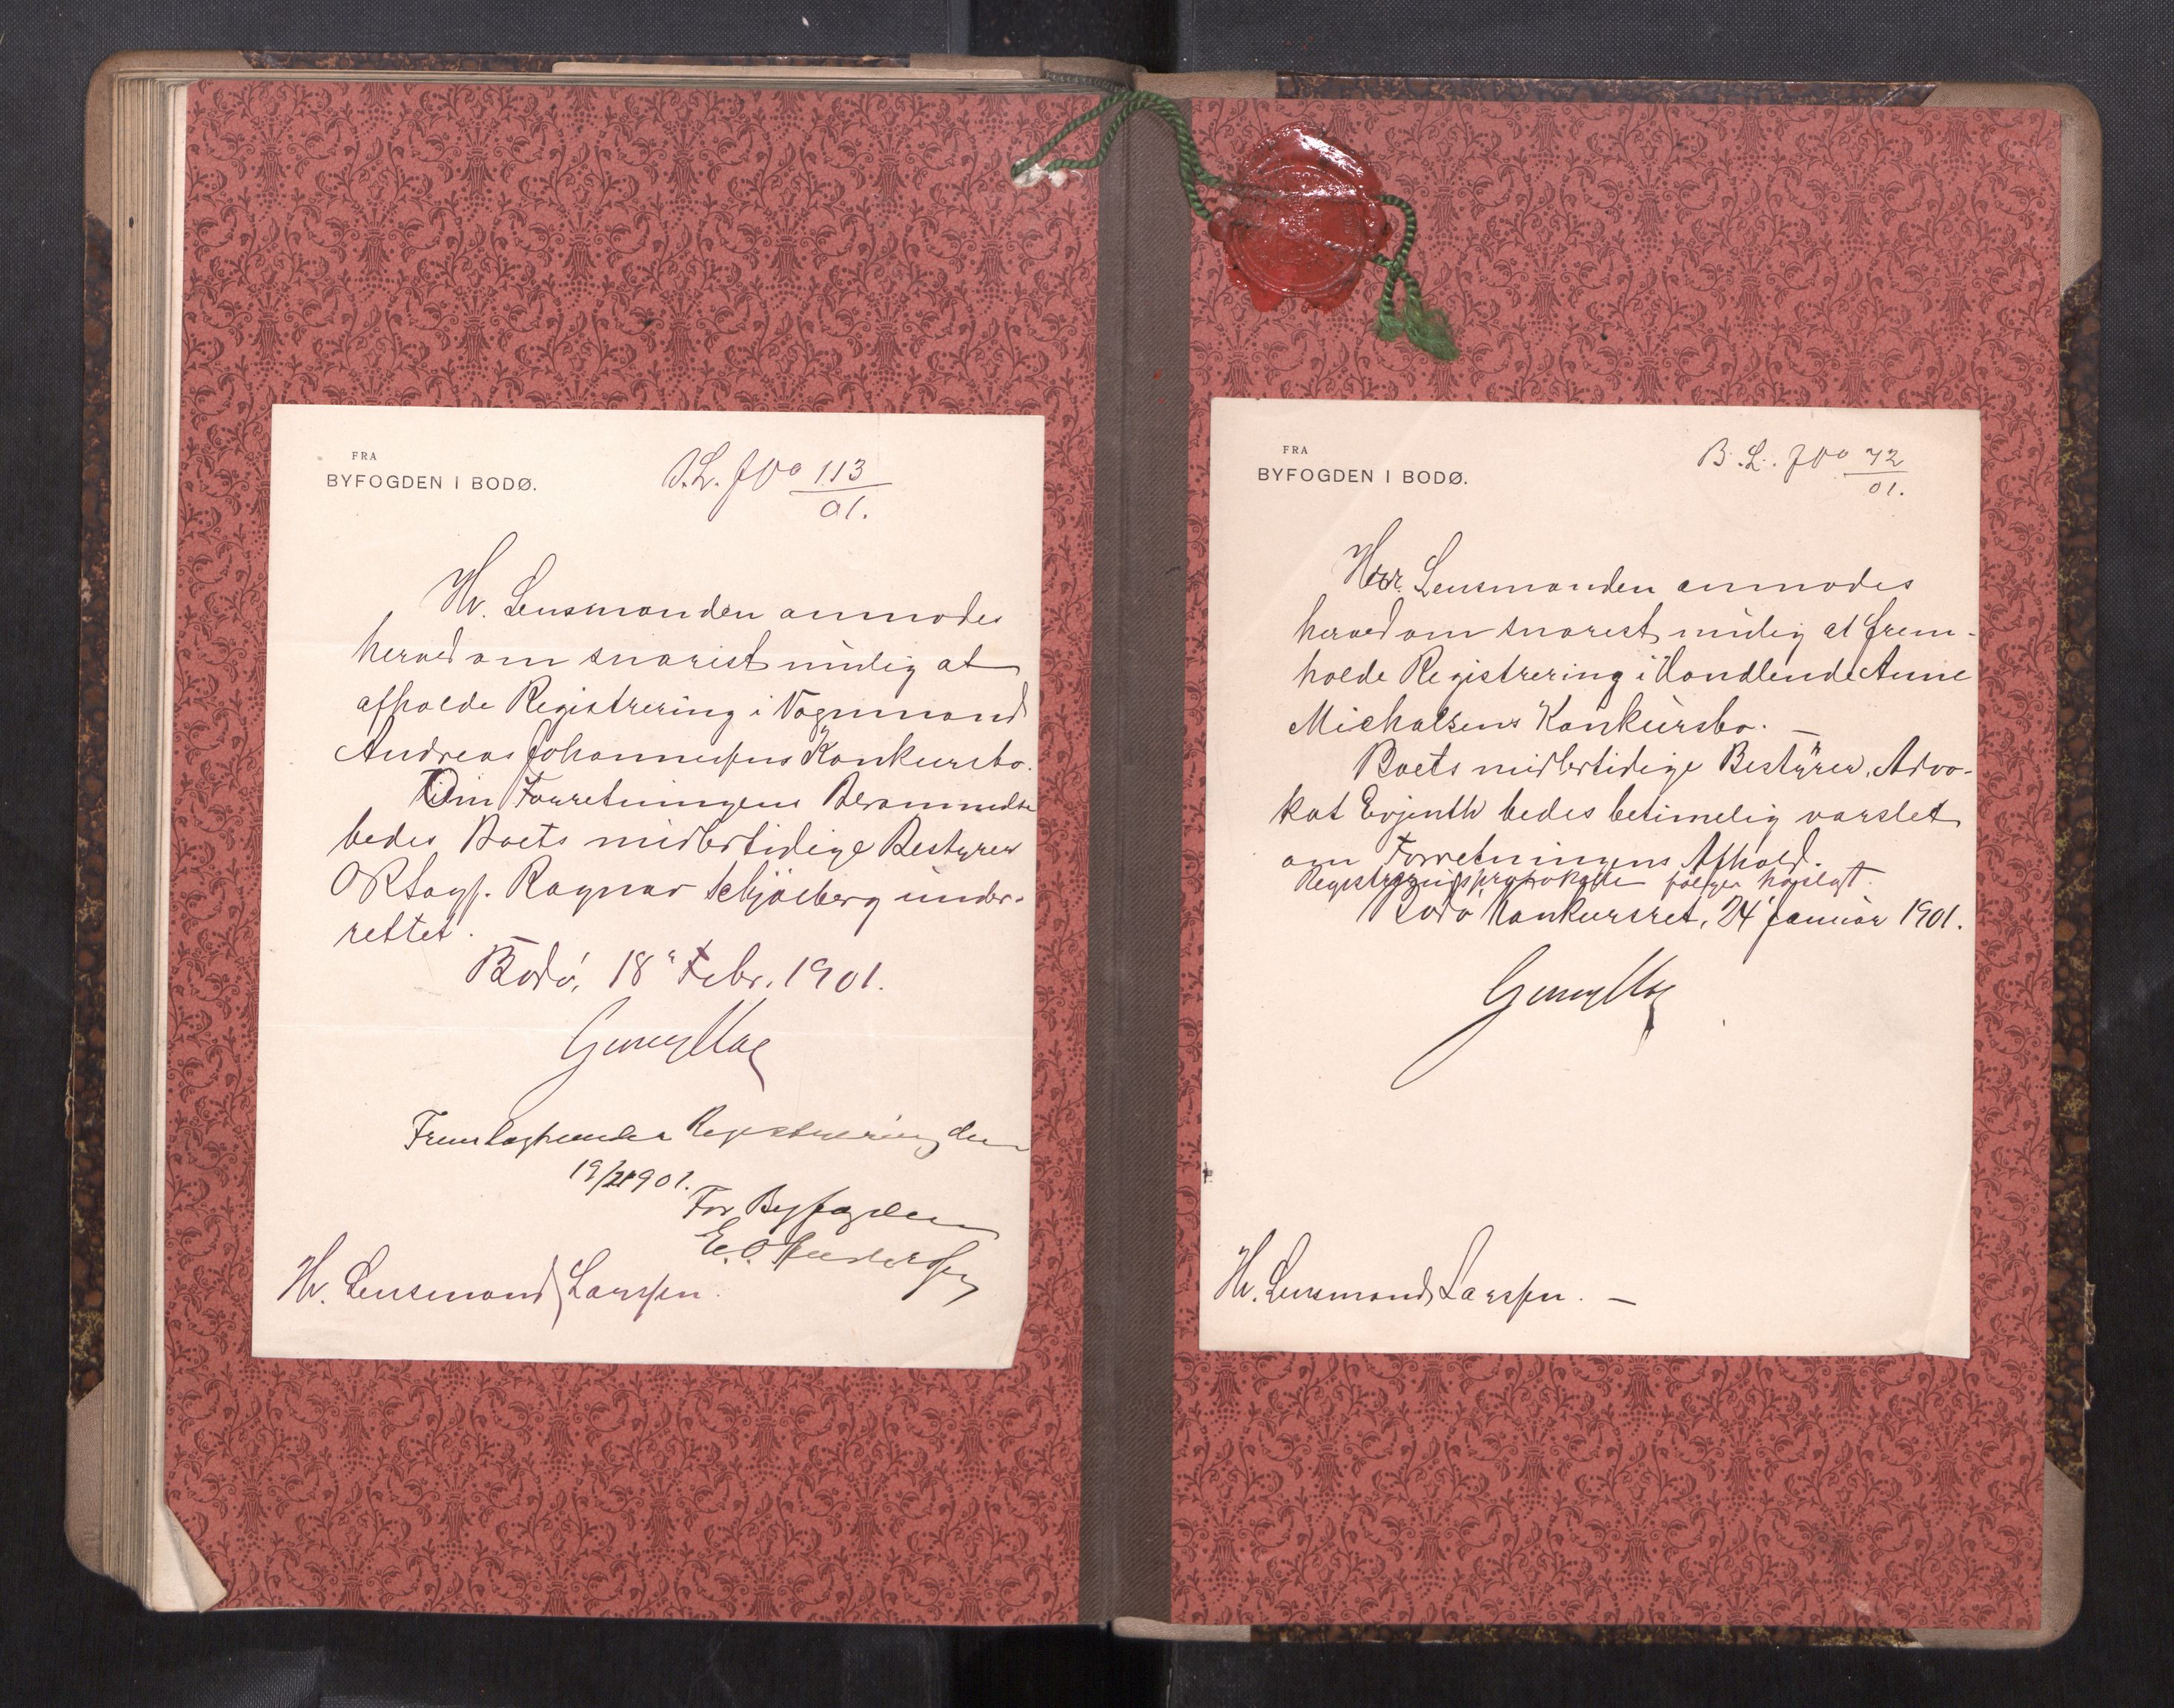 FRA
BYFOGDEN I BODØ.
B.L. J No 113
01.
Hr. Lensmanden anmodes
herved om snarest mulig at
afholde Registrering i Vognmand
Andreas Johannessens Konkursbo.
Om Forretningens Berammelse
bedes Boets midlertidige Bestyrer
ORSagf. Ragnar Schjølberg under-
rettet.
Bodø, 18 Febr. 1901.
Fremlagt under Registrering den
19/2 1901.
For Byfogden
E. O. Andersen
Hr. Lensmand Larssen.
FRA
BYFOGDEN I BODØ.
B.L. J No 72
01.
Herr Lensmanden anmodes
herved om snarest mulig at frem-
holde Registrering i Handlende Anne
Michalsens Konkursbo. —
Boets midlertidige Bestyrer, Advo-
kat Evjenth bedes betimelig varslet
om Forretningens Afhold.
Registreringsprotokollen følger
Bodø Konkursret, 24 Januar 1901.
Hr. Lensmand Larssen. —